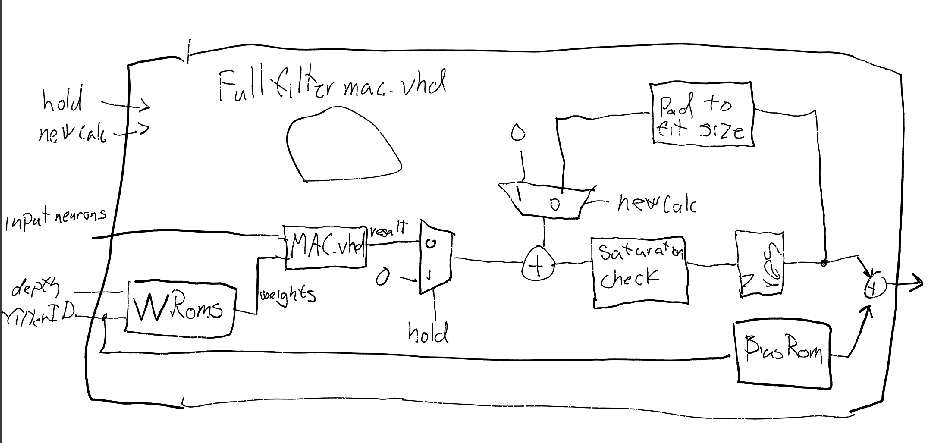 Full filter mac.vhd
hold
new calc
Pad to
fit size
0
1
0
new calc
input neurons
MAC.vhd
result
0
0
1
hold
+
Saturation
check
reg
+
depth
filterID
WRoms
weights
Bias Rom